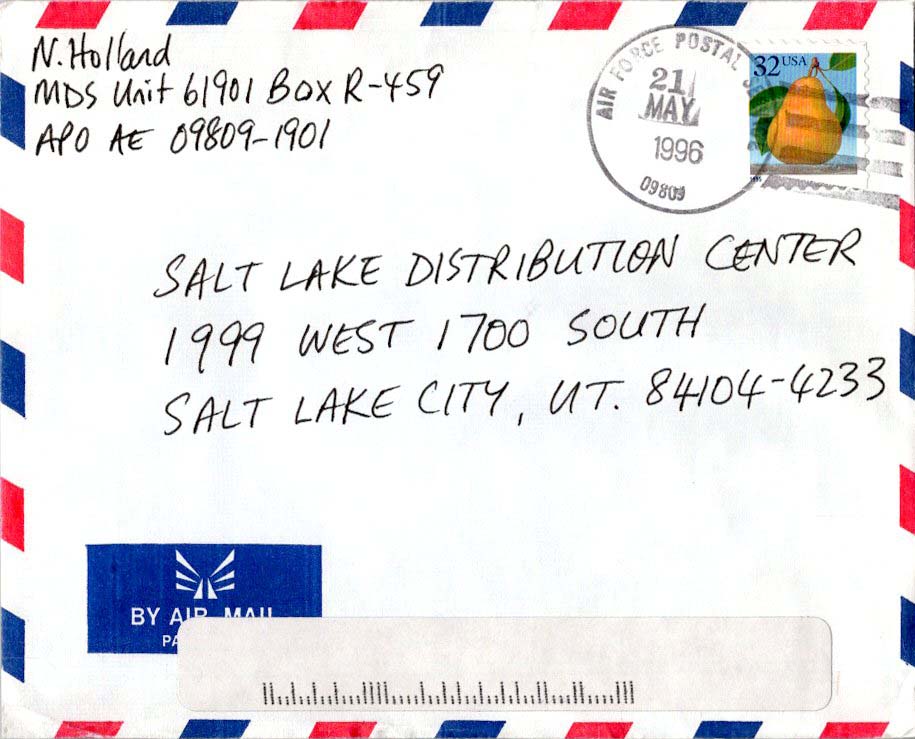 N. Holland
MDS Unit 61901 Box R-459
APO AE 09809-1901
AIR FORCE POSTAL
21
MAY
1996
09809
32 USA
SALT LAKE DISTRIBUTION CENTER
1999 WEST 1700 SOUTH
SALT LAKE CITY, UT. 84104-4233
BY AIR MAIL